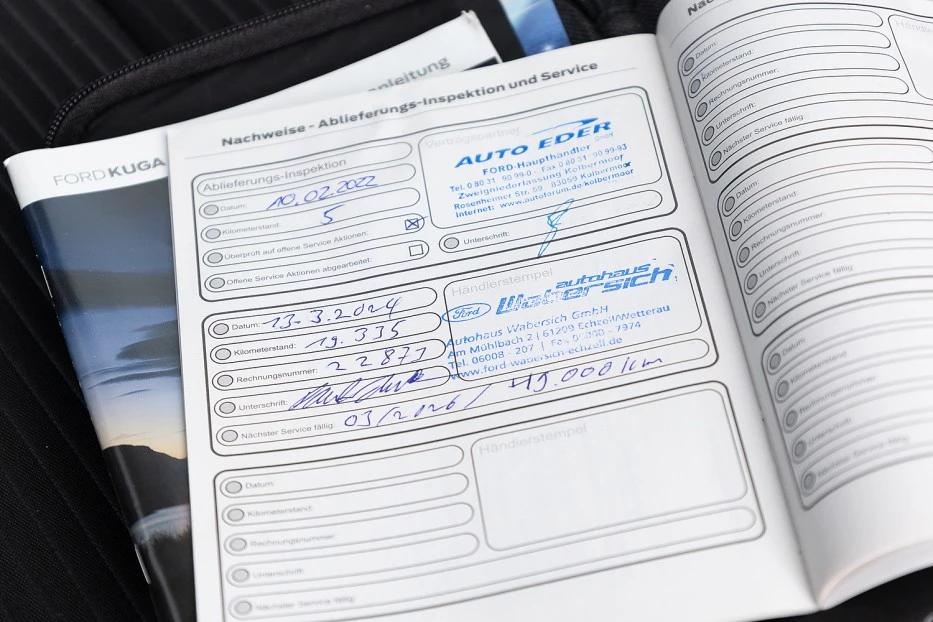 nleitung
FORD KUGA
Nachweise - Ablieferungs-Inspektion und Service
Ablieferungs-Inspektion
Datum: 10.02.2022
Kilometerstand: 5
Überprüft auf offene Service Aktionen:
Offene Service Aktionen abgearbeitet:
Vertragspartner
AUTO EDER
GmbH
FORD-Haupthändler
Tel. 0 80 31 90 99-0 · Fax 0 80 31 90 99-93
Zweigniederlassung Kolbermoor
Rosenheimer Str. 59 83059 Kolbermoor
Internet: www.autoforum.de/kolbermoor
Unterschrift:
Datum: 13.3.2024
Kilometerstand: 19.335
Rechnungsnummer: 22871
Unterschrift:
Nächster Service fällig: 03/2026 / 49.000 km
Händlerstempel
Ford
autohaus
Wabersich
Autohaus Wabersich GmbH
Am Mühlbach 2 | 61209 Echzell/Wetterau
Tel. 06008 - 207 | Fax - 7974
www.ford-wabersich-echzell.de
Datum:
Kilometerstand:
Rechnungsnummer:
Unterschrift:
Nächster Service fällig:
Händlerstempel
Datum:
Kilometerstand:
Rechnungsnummer:
Unterschrift:
Nächster Service fällig:
Datum:
Kilometerstand:
Rechnungsnummer:
Unterschrift:
Nächster Service fällig:
Datum:
Kilometerstand:
Rechnungsnummer:
Unterschrift:
Nächster Service fällig: